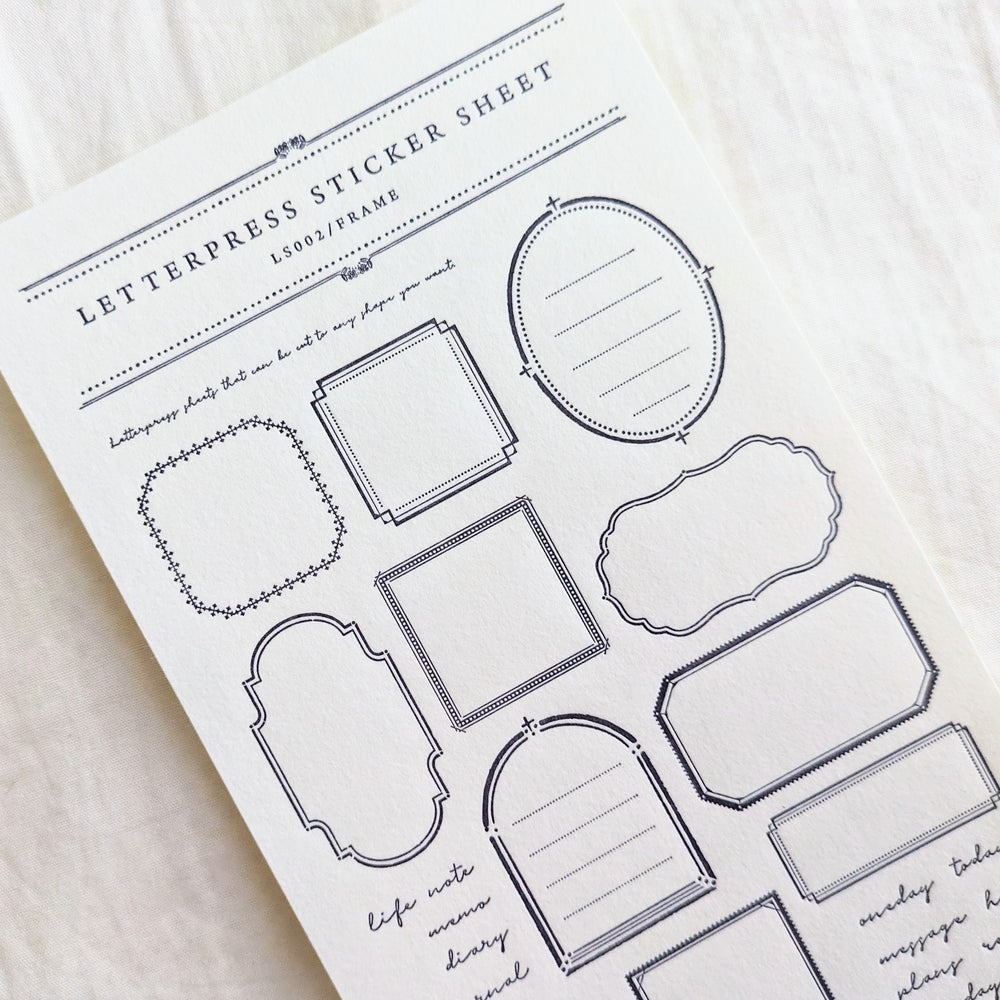 LETTERPRESS STICKER SHEET
LS002/FRAME
Letterpress sheets that can be cut to any shape you want.
life note
memo
diary
oneday today
message
plans